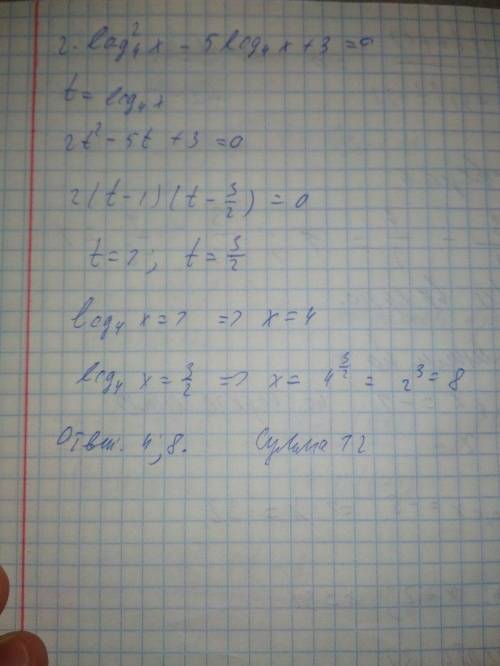 2·log₄²x − 5log₄x + 3 = 0
t = log₄x
2t² − 5t + 3 = 0
2(t−1)(t − 3/2) = 0
t = 1; t = 3/2
log₄ x = 1 => x = 4
log₄ x = 3/2 => x = 4^(3/2) = 2³ = 8
Ответ. 4; 8. Сумма 12